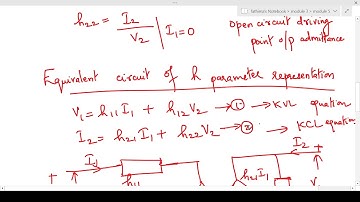 Tattwiers Notebook > module 3 > module 5
h22 = I2 / V2 | I1=0 open circuit driving point o/p admittance
Equivalent circuit of h parameter representation
V1 = h11 I1 + h12 V2 → ① → KVL equation
I2 = h21 I1 + h22 V2 → ② → KCL equation
I1 I2
+ h11 h21 I1 + V